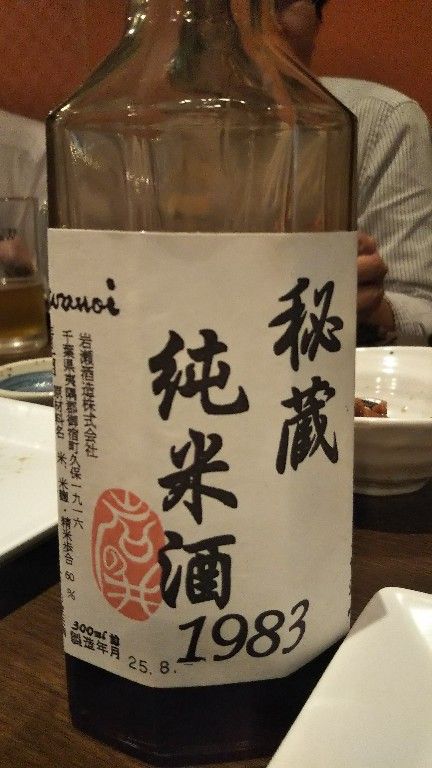 秘蔵
純米酒
1983
岩瀬酒造株式会社
千葉県夷隅郡御宿町久保一九一六
原材料名 米、米麹・精米歩合 60 %
300ml 詰
製造年月 25.8.
岩の井